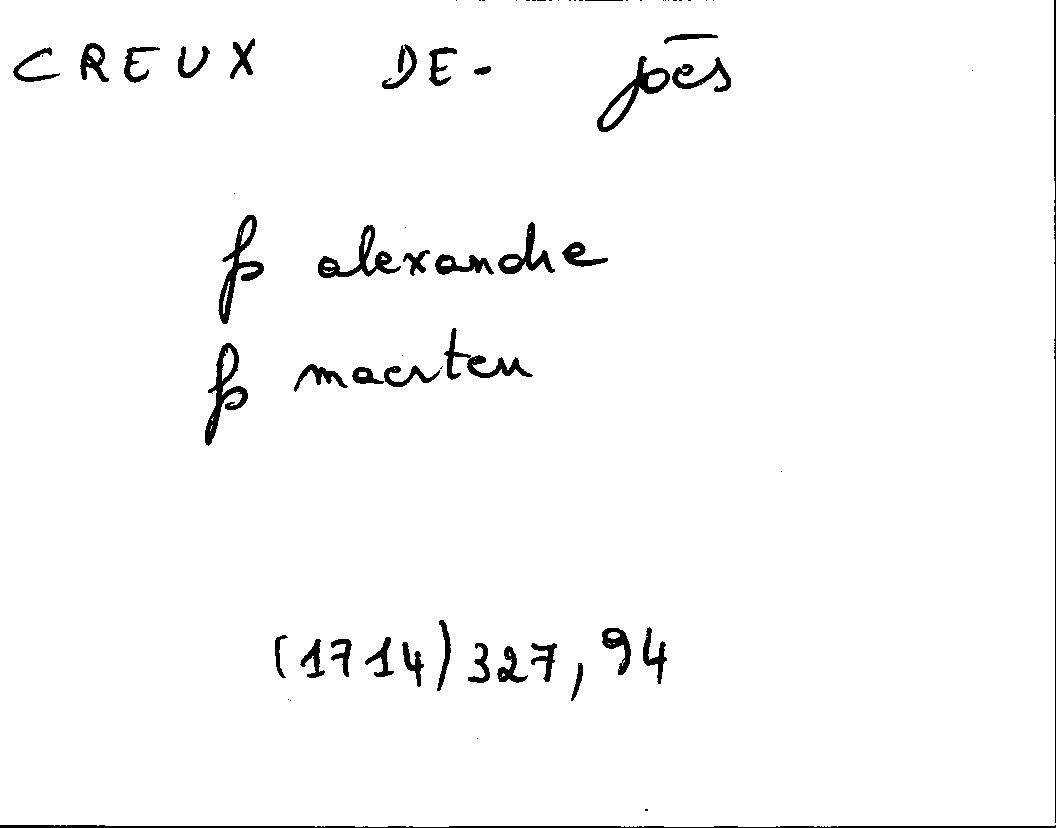 CREUX DE- joēs
fs alexandre
fs maerten
(1714) 327, 94